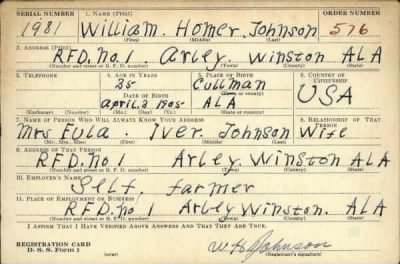 SERIAL NUMBER 1. NAME (Print) ORDER NUMBER
1981 William Homer Johnson 576
(First) (Middle) (Last)
2. ADDRESS (Print)
RFD. No 1 Arley Winston ALA
(Number and street or R. F. D. number) (Town) (County) (State)
3. TELEPHONE 4. AGE IN YEARS 5. PLACE OF BIRTH 6. COUNTRY OF CITIZENSHIP
35 Cullman
DATE OF BIRTH (Town or county)
April 2 1905 ALA USA
(Exchange) (Number) (Mo.) (Day) (Yr.) (State or country)
7. NAME OF PERSON WHO WILL ALWAYS KNOW YOUR ADDRESS 8. RELATIONSHIP OF THAT PERSON
Mrs Eula Iver Johnson Wife
(Mr., Mrs., Miss) (First) (Middle) (Last)
9. ADDRESS OF THAT PERSON
RFD. No 1 Arley Winston ALA
(Number and street or R. F. D. number) (Town) (County) (State)
10. EMPLOYER'S NAME
Self, farmer
11. PLACE OF EMPLOYMENT OR BUSINESS
RFD. No 1 Arley Winston. ALA
(Number and street or R. F. D. number) (Town) (County) (State)
I AFFIRM THAT I HAVE VERIFIED ABOVE ANSWERS AND THAT THEY ARE TRUE.
REGISTRATION CARD
D. S. S. Form 1 (over) W H Johnson
(Registrant's signature)